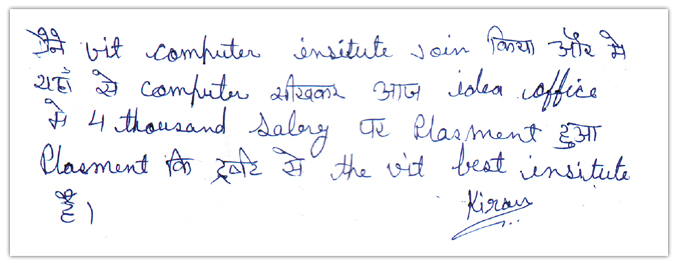 मैंने vit computer insitute Join किया और मे
यहाँ से computer सीखकर आज idea office
मे 4 thousand Salery पर Plasment हुआ
Plasment कि से the vit best insitute
है।
Kiran